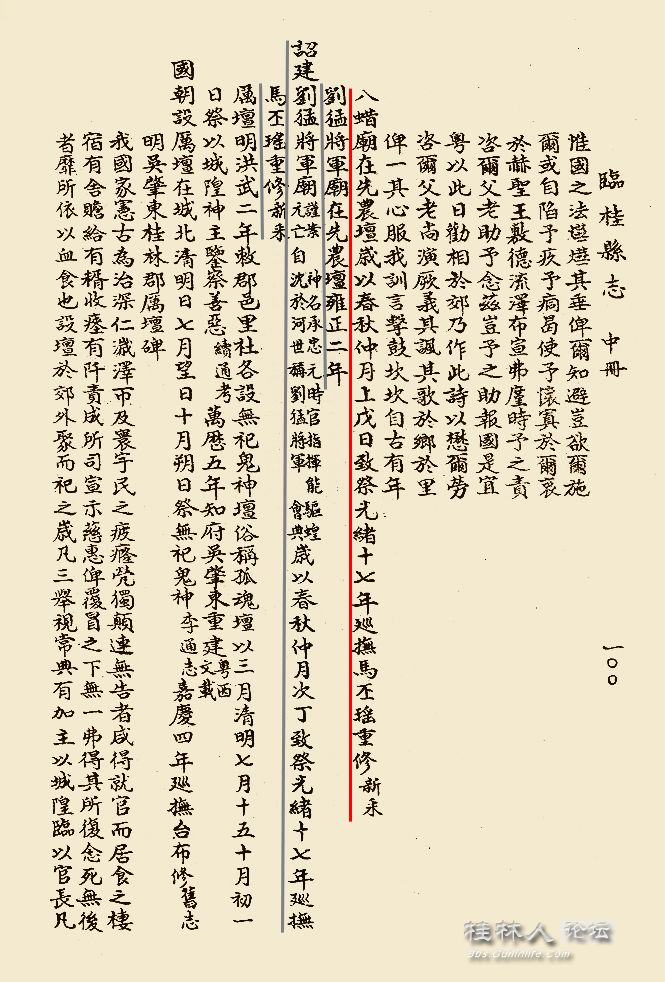 臨桂縣志 中冊
一〇〇
惟國之法懲懲其垂俾爾知避豈欲爾施
爾或自陷予疚予痌曷使予懷寘於爾衷
於赫聖王敷德流澤布宣弗廑時予之責
咨爾父老助予念茲豈予之助報國是宜
粵以此日勸相於郊乃作此詩以懋爾勞
咨爾父老尚演厥義其諷其歌於鄉於里
俾一其心服我訓言擊鼓坎坎自古有年
八蜡廟在先農壇歲以春秋仲月上戊日致祭光緒十七年巡撫馬丕瑤重修新采
劉猛將軍廟在先農壇雍正二年
詔建劉猛將軍廟謹案神名承忠元時官指揮能驅蝗元亡自沈於河世稱劉猛將軍會典歲以春秋仲月次丁致祭光緒十七年巡撫
馬丕瑤重修新采
厲壇明洪武二年敕郡邑里社各設無祀鬼神壇俗稱孤魂壇以三月清明七月十五十月初一
日祭以城隍神主鑒察善惡續通考萬歷五年知府吳肇東重建粵西文載
國朝設厲壇在城北清明日七月望日十月朔日祭無祀鬼神李通志嘉慶四年巡撫台布修舊志
明吳肇東桂林郡厲壇碑
我國家憲古為治深仁濊澤帀及寰宇民之疲癃煢獨顛連無告者咸得就官而居食之棲
宿有舍贍給有稍收瘞有阡責成所司宣示慈惠俾覆冒之下無一弗得其所復念死無後
者靡所依以血食也設壇於郊外聚而祀之歲凡三舉視常典有加主以城隍臨以官長凡
桂林人论坛
bbs.Guilinlife.com